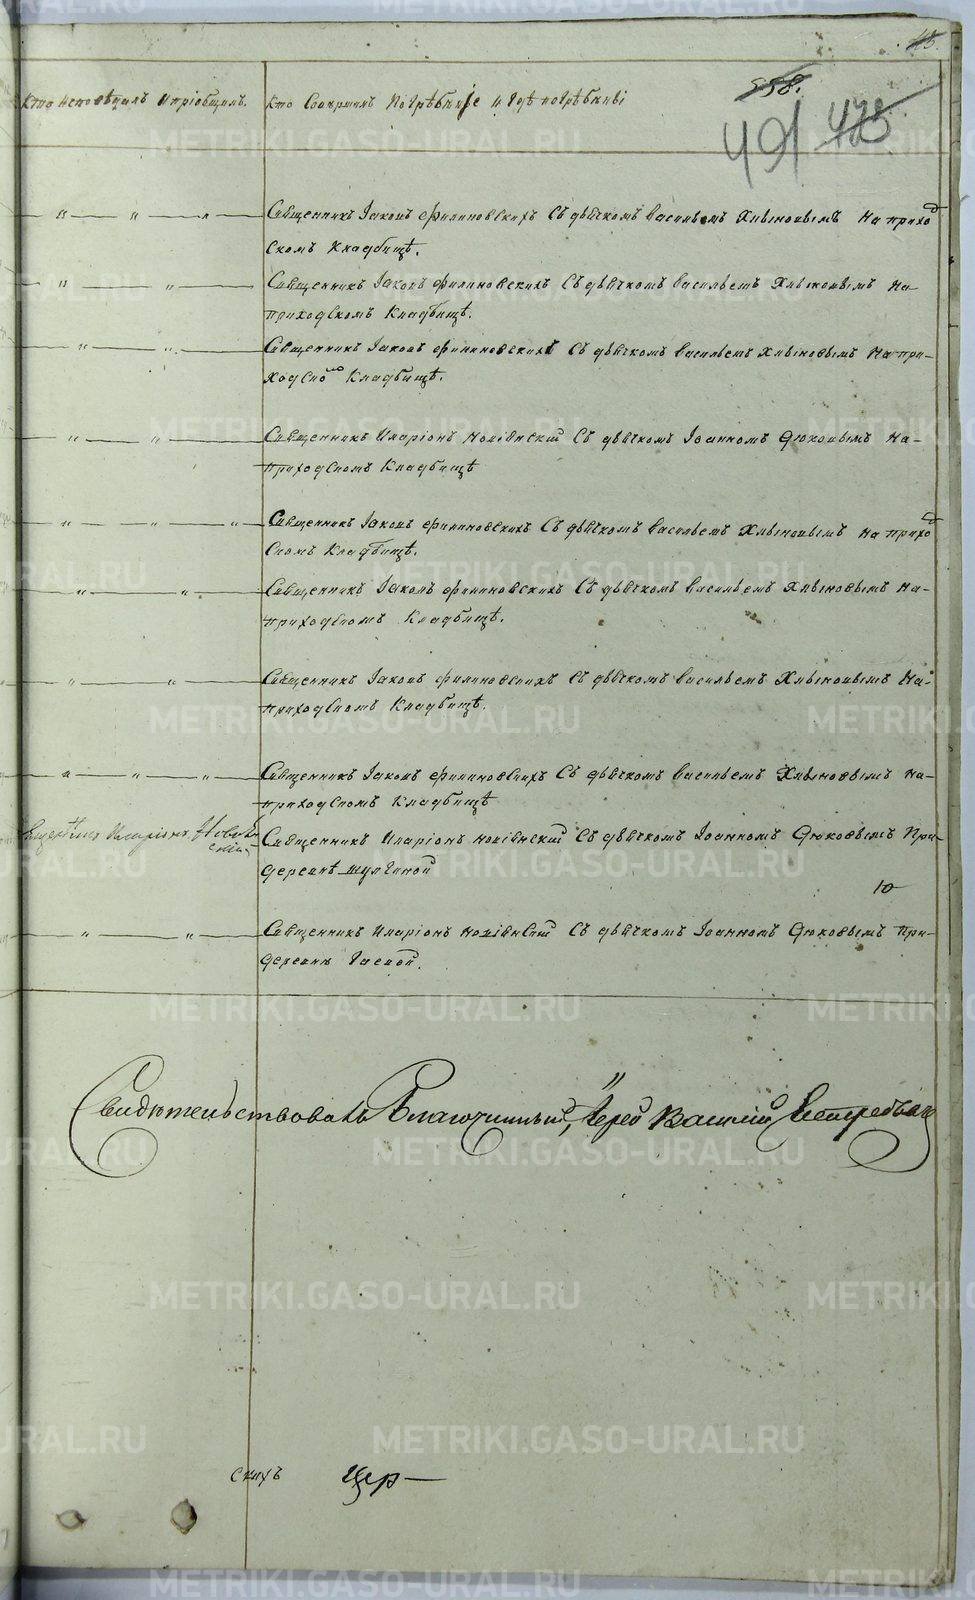 45.
Кто исповѣдалъ и пріобщалъ. Кто совершалъ погрѣбеніе и гдѣ погрѣбены
558.
491 473
Священникъ Іаковъ Филиновскихъ съ дьячкомъ Васильемъ Хлыновымъ на приход
скомъ кладбищѣ.
Священникъ Іаковъ Филиновскихъ съ дьячкомъ Васильемъ Хлыновымъ на
приходскомъ кладбищѣ.
Священникъ Іаковъ Филиновскихъ съ дьячкомъ Васильемъ Хлыновымъ на при-
ходско мъ кладбищѣ.
Священникъ Иларіонъ съ дьячкомъ Іоанномъ Дюковымъ на-
приходскомъ кладбищѣ
Священникъ Іаковъ Филиновскихъ съ дьячкомъ Васильемъ Хлыновымъ на приход
скомъ кладбищѣ.
Священникъ Іаковъ Филиновскихъ съ дьячкомъ Васильемъ Хлыновымъ на-
приходскомъ кладбищѣ.
Священникъ Іаковъ Филиновскихъ съ дьячкомъ Васильемъ Хлыновымъ на-
приходскомъ кладбищѣ.
Священникъ Іаковъ Филиновскихъ съ дьячкомъ Васильемъ Хлыновымъ на-
приходскомъ кладбищѣ
Священникъ Иларіонъ
Священникъ Иларіонъ съ дьячкомъ Іоанномъ Дюковымъ при-
деревнѣ Шулгиной
10
Священникъ Иларіонъ съ дьячкомъ Іоанномъ Дюковымъ при-
деревнѣ
Свидѣтельствовалъ Благочинный, Іерей Василій
скихъ Цер—
METRIKI.GASO-URAL.RU